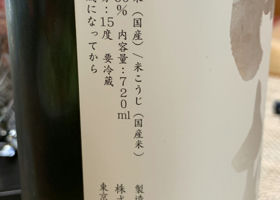 米(国産)/米こうじ(国産米)
0% 内容量:720ml
:15度 要冷蔵
になってから
製造
株式
東京